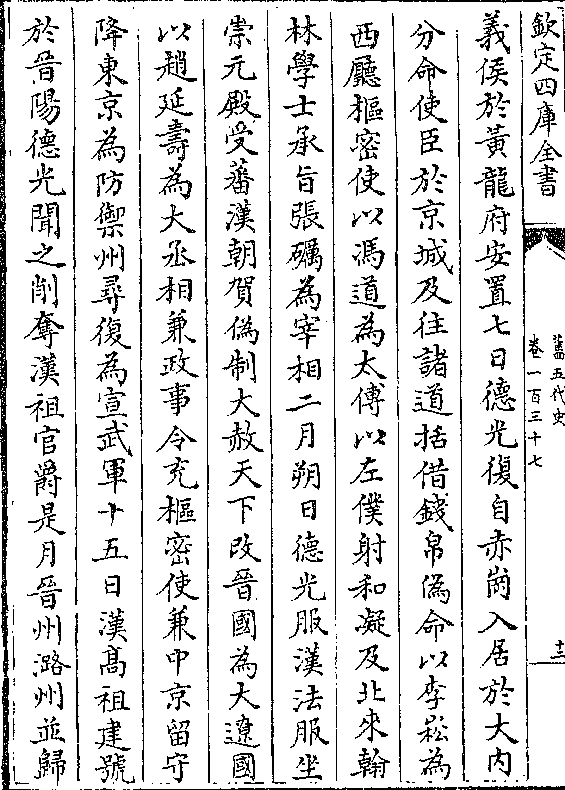 欽定四庫全書
舊五代史
卷一百三十七
十三
義侯於黃龍府安置七日德光復自赤崗入居於大內
分命使臣於京城及往諸道括借錢帛偽命以李崧為
西廳樞密使以馮道為太傅以左僕射和凝及北來翰
林學士承旨張礪為宰相二月朔日德光服漢法服坐
崇元殿受蕃漢朝賀偽制大赦天下改晉國為大遼國
以趙延壽為大丞相兼政事令充樞密使兼中京留守
降東京為防禦州尋復為宣武軍十五日漢高祖建號
於晉陽德光聞之削奪漢祖官爵是月晉州潞州並歸